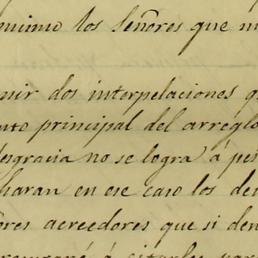 nimimo los Señores que m
nir dos interpelaciones q
nto principal del arreglo
esgracia no se logra á pes
haran en ese caso los de
ores acreedores que si den
á citarles par